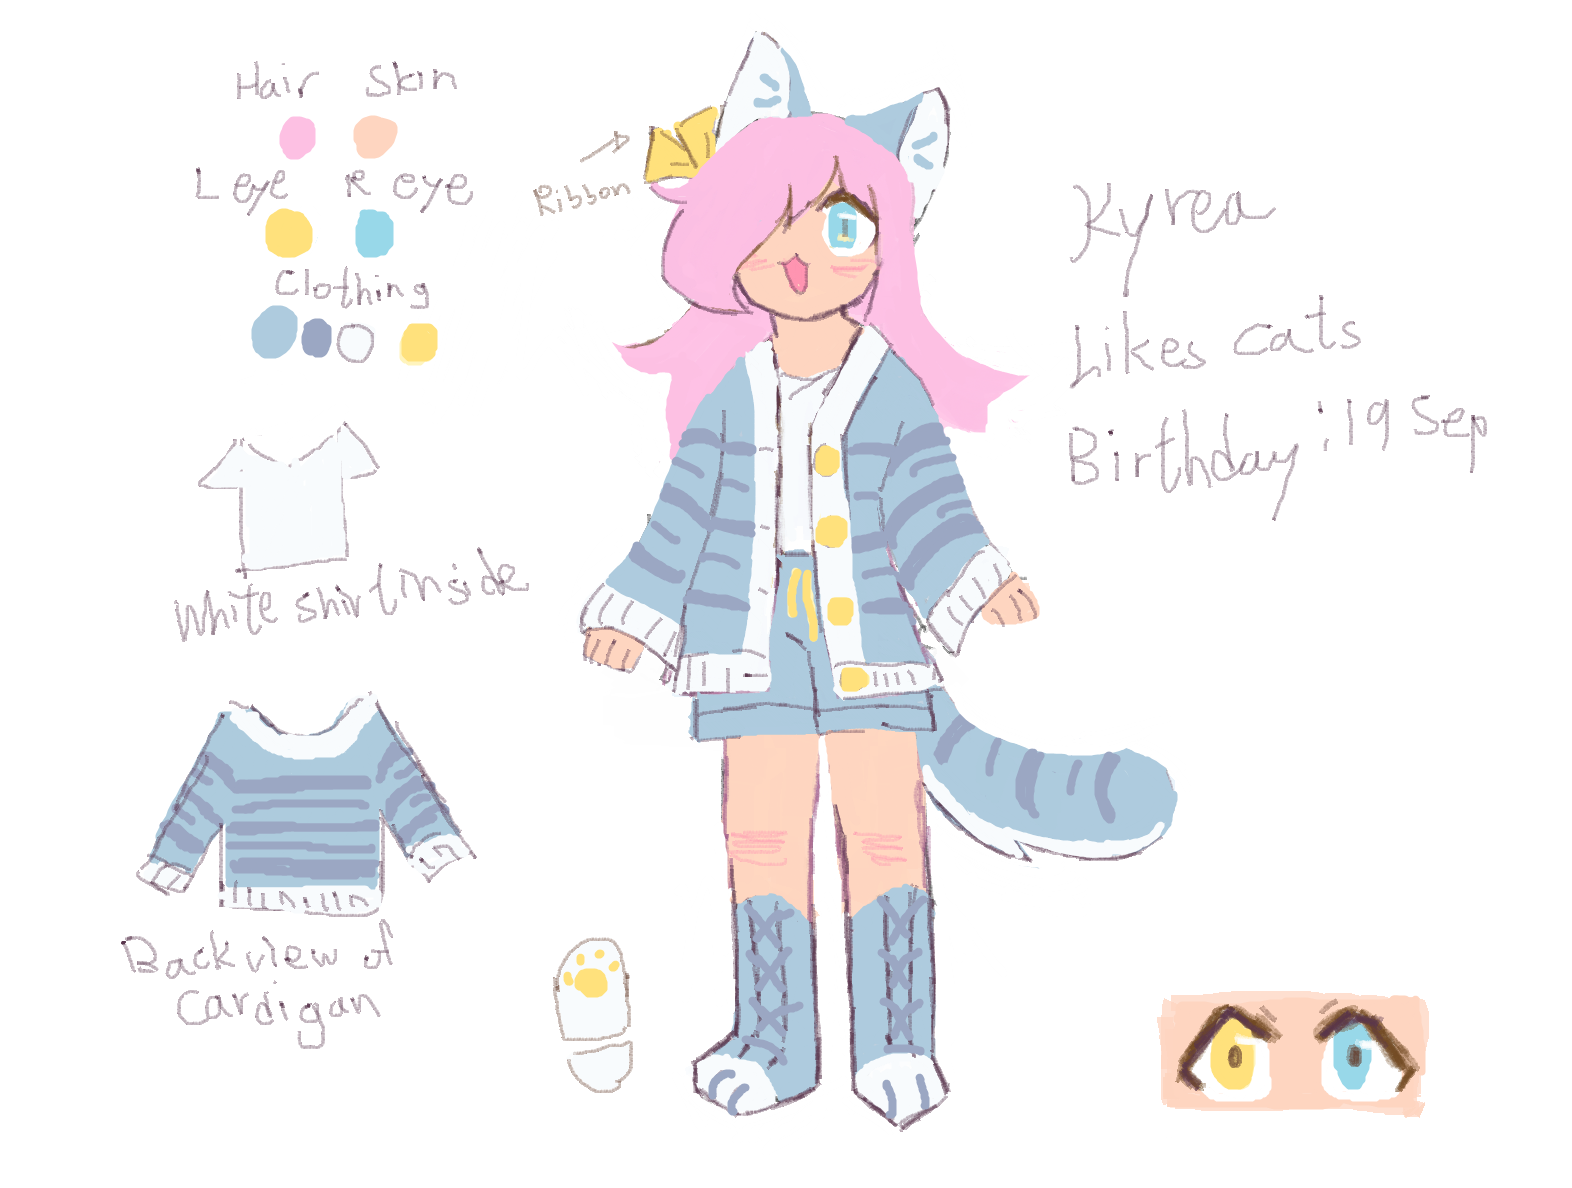 Hair Skin
L eye R eye
Clothing
Ribbon
White shirt inside
Back view of
cardigan
Kyrea
Likes cats
Birthday : 19 Sep